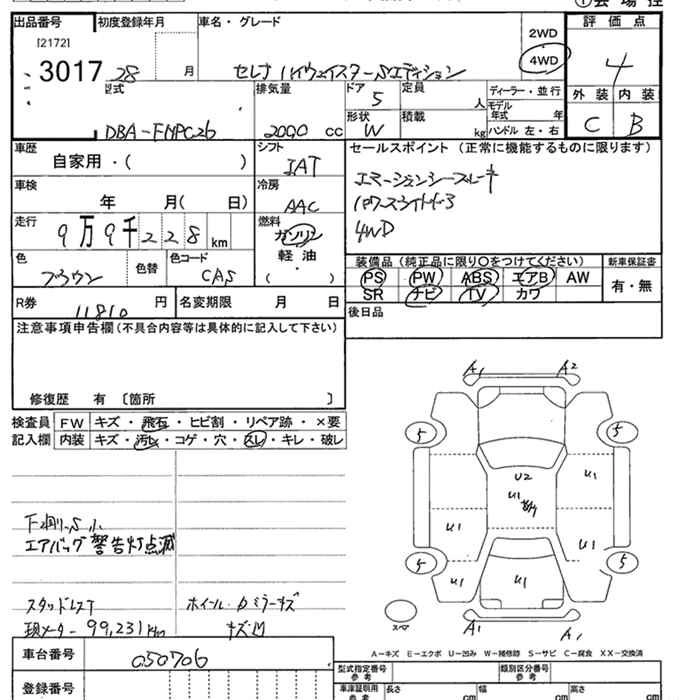 ①会場控
出品番号 初度登録年月 車名・グレード 2WD 評価点
[2172]
3017 28 月 セレナ ハイウェイスターSエディション 4WD 4
型式 排気量 ドア 5 定員 人 ディーラー・並行 外装 内装
DBA-FNPC26 2000 cc 形状 W 積載 kg モデル年式 年 ハンドル 左・右 C B
車歴 シフト セールスポイント(正常に機能するものに限ります)
自家用・( ) IAT
車検 冷房 エマージェンシーブレーキ
年 月( 日) AAC パワースライドドア
走行 燃料 4WD
9万9千228km ガソリン
軽油
・
( )
色 色替 色コード 装備品(純正品に限り○をつけてください) 新車保証書
ブラウン CAS PS PW ABS エアB AW 有・無
R券 11810 円 名変期限 月 日 SR ナビ TV カワ
注意事項申告欄(不具合内容等は具体的に記入して下さい) 後日品
修復歴 有 〔箇所 〕
検査員 FW キズ・飛石・ヒビ割・リペア跡・×要
記入欄 内装 キズ・汚れ・コゲ・穴・スレ・キレ・破レ
A1 A2
5 5
U2
U1 U1
U1 U1
5 5
U1 U1 U1
A1 A1
スペア
下廻りS小
エアバッグ警告灯点滅
スタッドレスT ホイール・ドアミラーキズ
現メーター 99,231km キズ凹
A-キズ E-エクボ U-凹み W-補修跡 S-サビ C-腐食 XX-交換済
車台番号 050706
登録番号
型式指定番号 参考 類別区分番号 参考
車庫証明用 参考 長さ cm 幅 cm 高さ cm